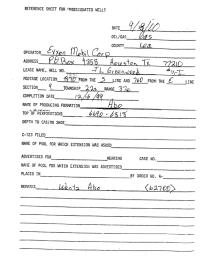 REFERENCE SHEET FOR UNDESIGNATED WELLS
DATE 4/8/00
OIL/GAS Gas
COUNTY Lea
OPERATOR Exxon Mobil Corp
ADDRESS PO Box 4358 Houston TX 77210
LEASE NAME, WELL NO. J L Greenwood
FOOTAGE LOCATION FROM THE S LINE AND 760 FROM THE E LINE
SECTION 9 TOWNSHIP 22s RANGE 37e
COMPLETION DATE 12/6/99
NAME OF PRODUCING FORMATION Abo
TOP OF PERFORATIONS 6640 - 6813
DEPTH TO CASING SHOE
C-123 FILED
NAME OF POOL FOR WHICH EXTENSION WAS ASKED
ADVERTISED FOR HEARING CASE NO.
NAME OF POOL FOR WHICH EXTENSION WAS ADVERTISED
PLACED IN BY ORDER NO. R-
REMARKS Wantz Abo (62700)